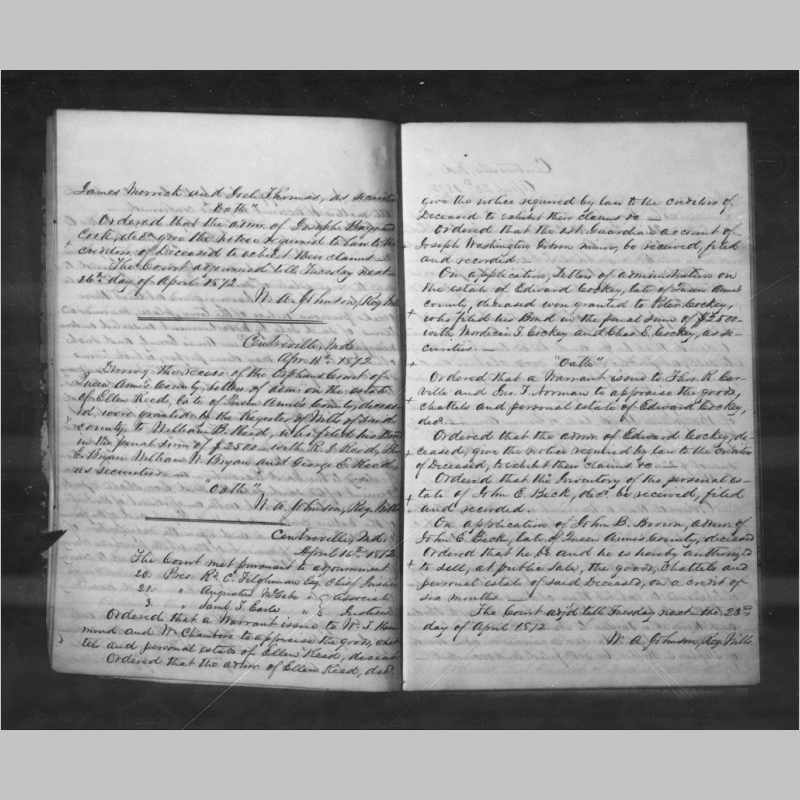 James Merrick and Joel Thomas, as securities
"Oath"
Ordered that the admr. of Joseph
Cook, decd. give the notice required by law to the
creditors of Deceased to exhibit their claims
The Court adjourned till Tuesday next
16th day of April 1872.
W. A. Johnson, Reg. Wills
Centreville, Md.
Apr. 11th 1872
During the recess of the Orphans Court of
Queen Ann's County, letters of adm. on the estate
of Ellen Reed, late of Queen Ann's County, deceas
ed, were granted by the Register of Wills of said
county to William B. Reed, who filed his Bond
in the penal sum of $2500 with R. J. Reed,
E. Bryan William W. Bryan and George E. Reed
as securities
"Oath"
W. A. Johnson, Reg. Wills
Centreville, Md.
April 16th 1872
The Court met pursuant to adjournment
20 Pres. R. C. Tilghman Esq. Chief Justice
21 " Augustus " Associate
3 " Saml. T. Earle " Justices
Ordered that a Warrant issue to W. J. Ham
mond and Wm. Chambers to appraise the goods, chat
tels and personal estate of Ellen Reed, deceased
Ordered that the admr. of Ellen Reed, decd.
give the notice required by law to the creditors of
Deceased to exhibit their claims &c —
Ordered that the 1st. Guardian account of
Joseph Washington minor, be received, filed
and recorded.
On application, Letters of administration on
the estate of Edward Cockey, late of Queen Anns
county, deceased were granted to Peter Cockey,
who filed his Bond in the penal sum of $2500.
with Mordecai T. Cockey and Chas E. Cockey, as se-
curities. —
"Oath"
Ordered that a Warrant issue to Thos. R. Car-
ville and Jno. T. Norman to appraise the goods,
chattels and personal estate of Edward Cockey,
decd. —
Ordered that the admr. of Edward Cockey, de-
ceased, give the notice required by law to the Creditors
of Deceased, to exhibit their claims &c —
Ordered that the Inventory of the personal es-
tate of John E. Beck, decd. be received, filed
and recorded.
On application of John B. Brown, admr. of
John E. Beck, late of Queen Ann's County, deceased
Ordered that he be and he is hereby authorized
to sell, at public sale, the goods, chattels and
personal estate of said Deceased, on a credit of
six months
The Court adj'd till Tuesday next the 23rd
day of April 1872
W. A. Johnson, Reg. Wills